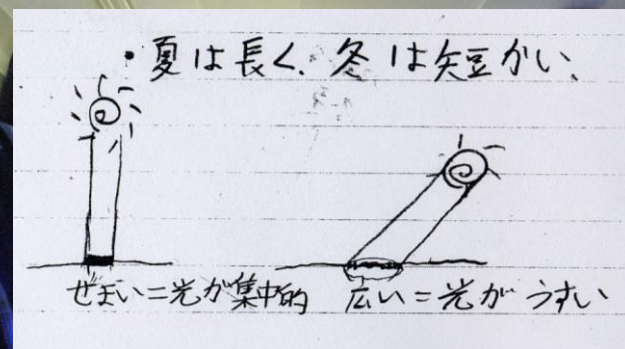 ・夏は長く、冬は短かい、
せまい=光が集中的 広い=光がうすい